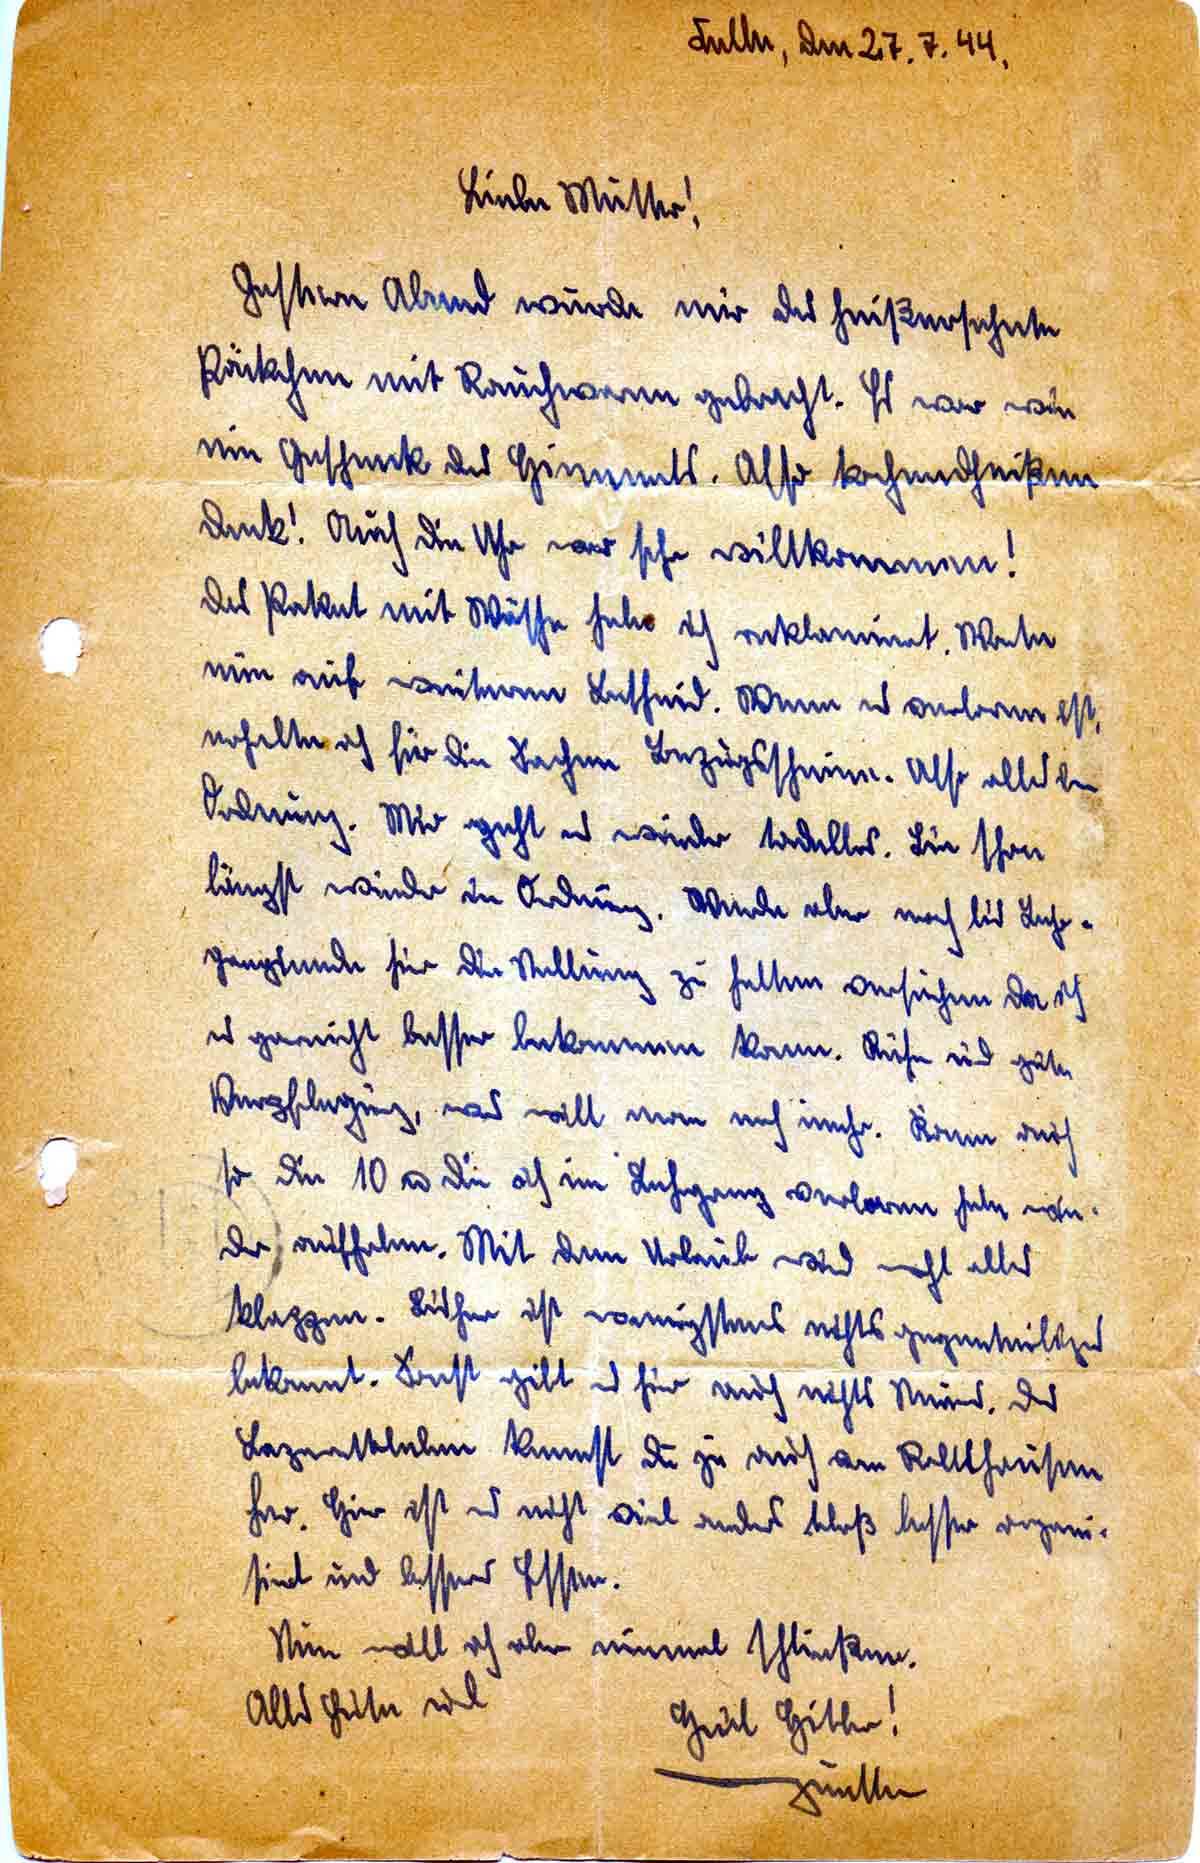 den 27.7.44.
Liebe Mutter!
Gestern Abend wurde mir das heißersehnte
Päckchen mit Rauchwaren gebracht. Es war wie
ein Geschenk des Himmels. Also kochendheißen
dank! Auch die Uhr war sehr willkommen!
Das Paket mit Wäsche habe ich reklamiert. Warte
nun auf weiteren Bescheid. Wenn es verloren ist,
erhalte ich für die Sachen Bezugsscheine. Also alles in
Ordnung. Mir geht es wieder tadellos. Bin schon
längst wieder in Ordnung. Werde aber noch bis Lehr-
gangsende hier die Stellung zu halten versuchen da ich
es garnicht besser bekommen kann. Ruhe und gute
Verpflegung, was will man noch mehr. Kann auch
so die 10 die ich im Lehrgang verloren habe wie-
der aufholen. Mit dem Urlaub wird wohl alles
klappen. Bisher ist wenigstens nichts gegenteiliges
bekannt. Sonst gibt es hier auch nichts Neues. Das
Lazarettleben kennst du ja auch von
her. Hier ist es nicht viel anders bloß besser organi-
siert und besseres Essen.
Nun will ich aber einmal schließen.
Alles Gute und
Heil Hitler!
Günther